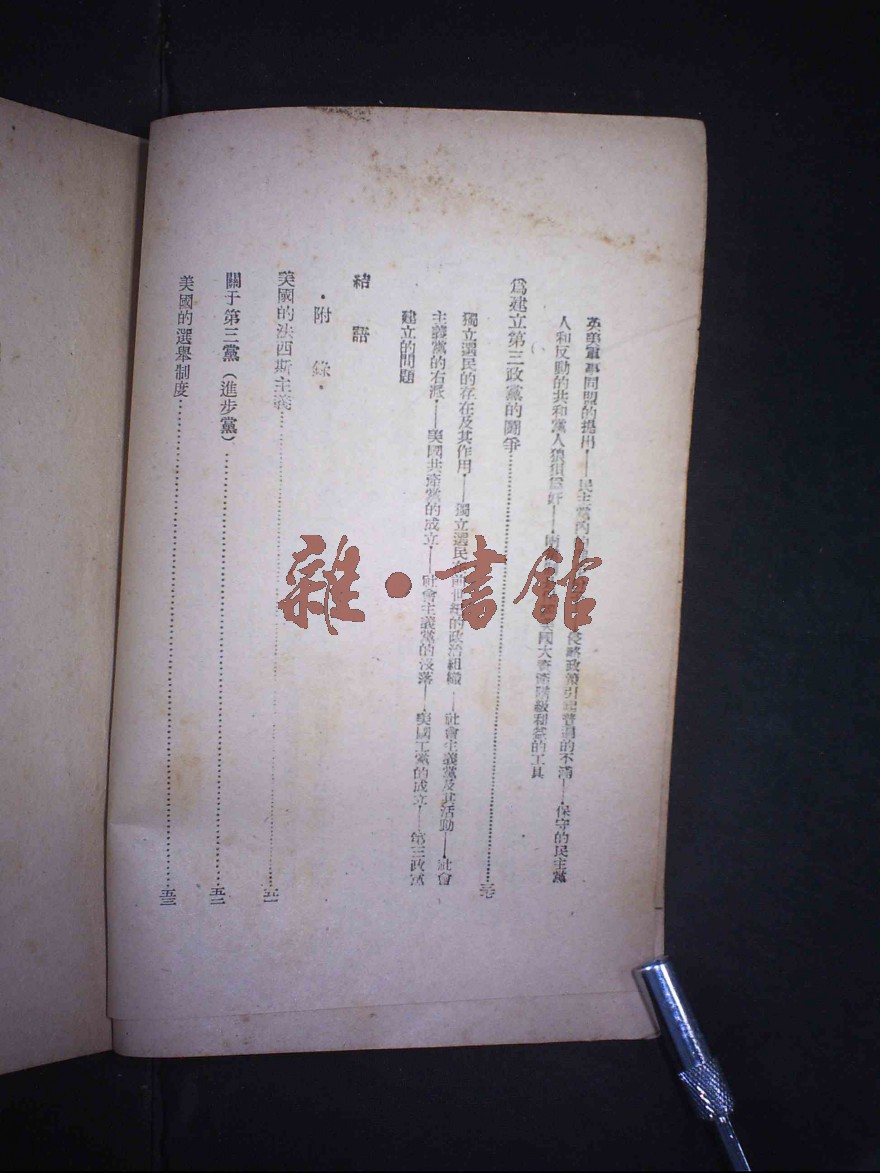 英美軍事同盟的提出——民主黨內侵略政策引起普遍的不滿——保守的民主黨
人和反動的共和黨人狼狽為奸——國大資產階級和談的工具
為建立第三政黨的鬪爭……三七
獨立選民的存在及其作用——獨立選民在前世紀的政治組織——社會主義黨及其活動——社會
主義黨的右派——美國共產黨的成立——社會主義黨的沒落——美國工黨的成立——第三政黨
建立的問題
結語
·附錄·
美國的法西斯主義……五一
關于第三黨(進步黨)……五二
美國的選舉制度……五三
雜·書館